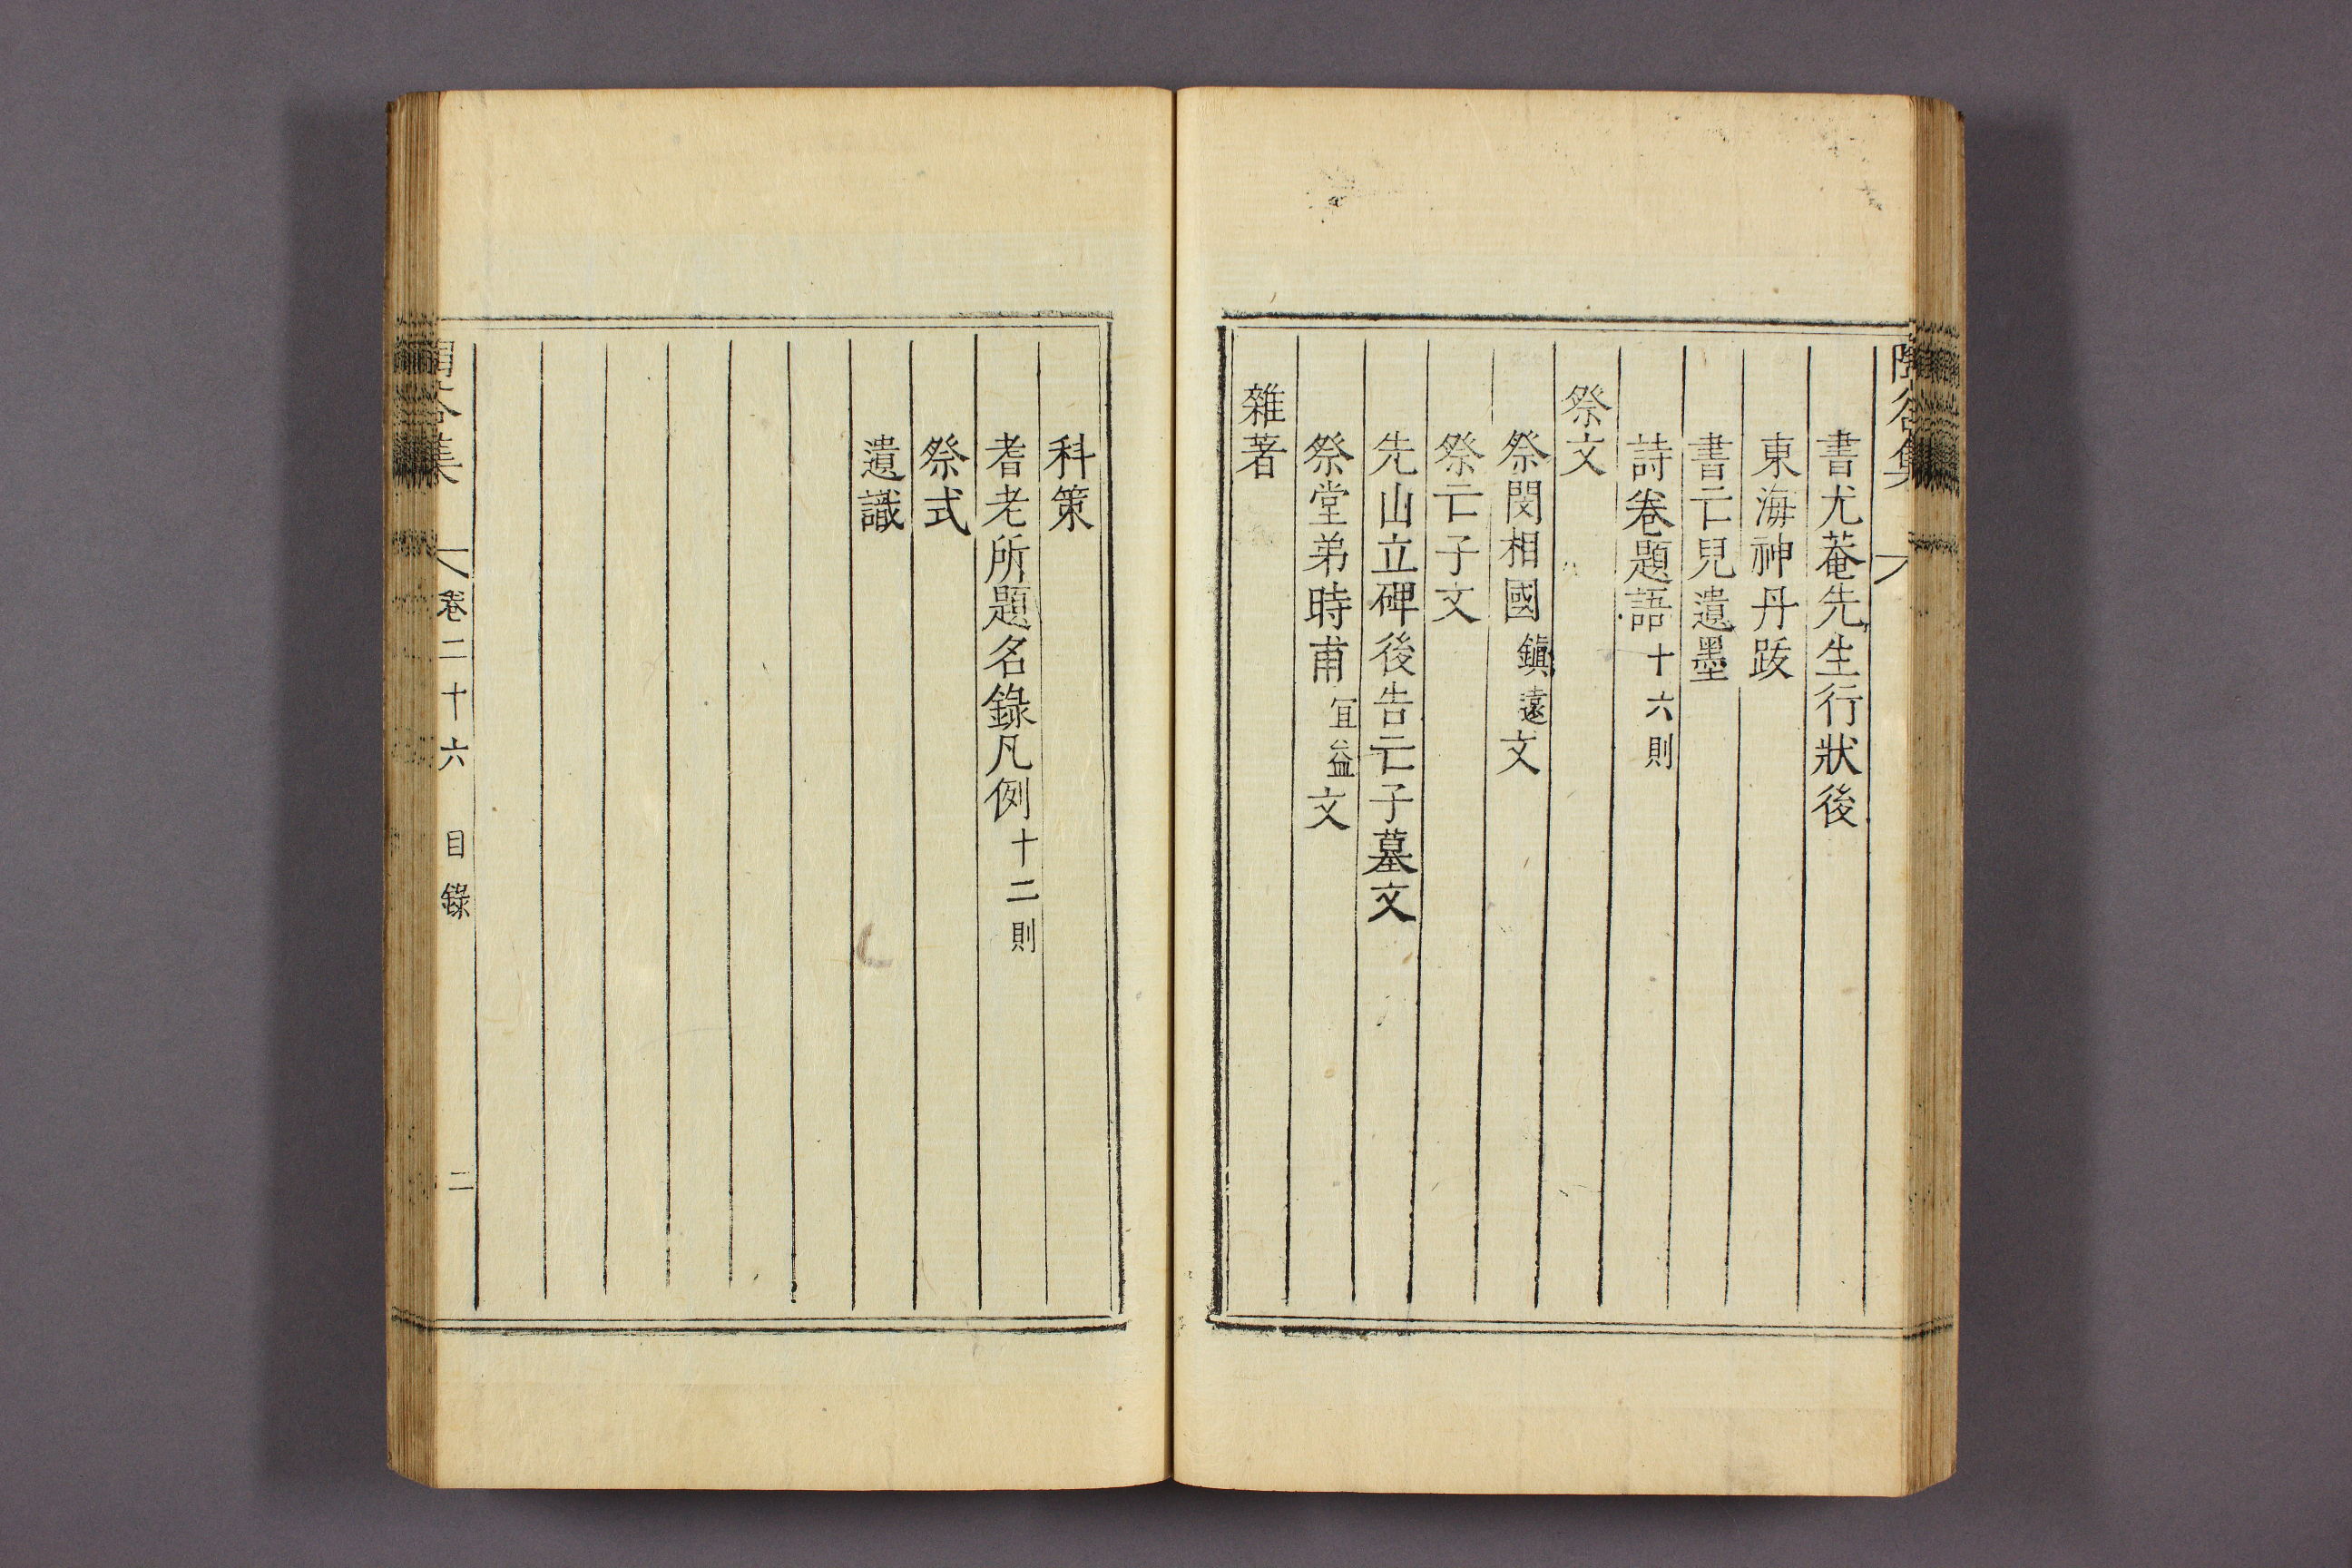 書尤菴先生行狀後
東海神丹跋
書亡兒遺墨
詩卷題語十六則
祭文
祭閔相國鎭遠文
祭亡子文
先山立碑後告亡子墓文
祭堂弟時甫宜益文
雜著
科策
耆老所題名錄凡例十二則
祭式
遺識
谷集
卷二十六 目錄 二